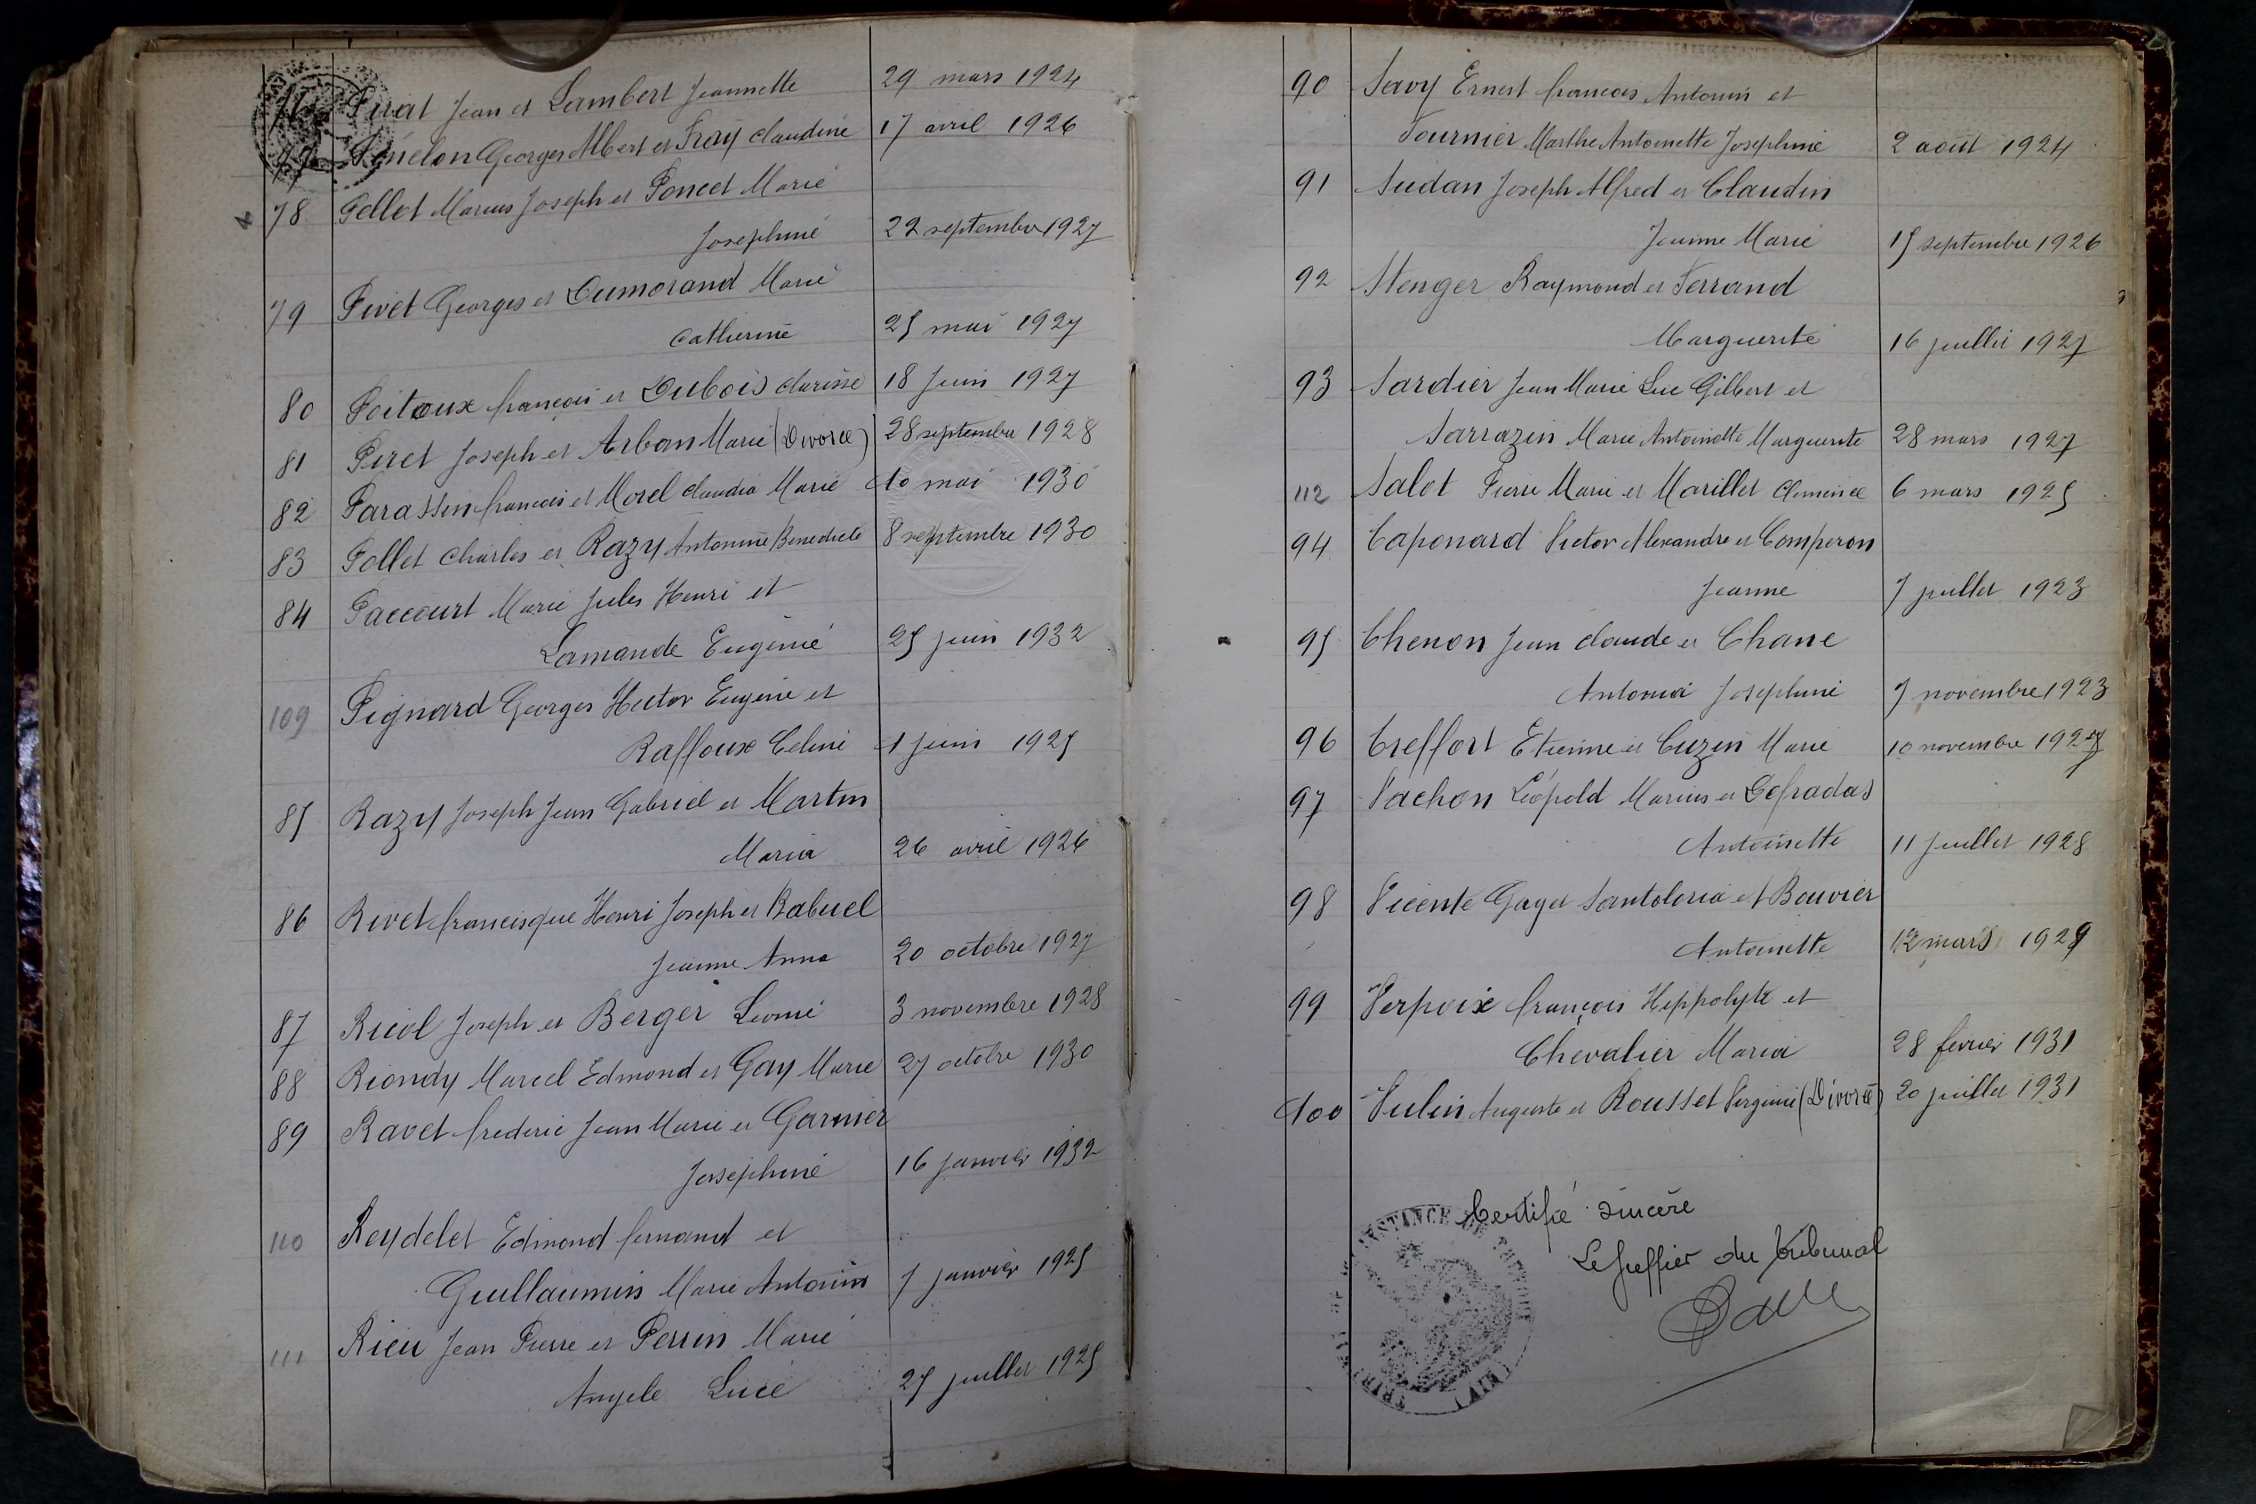 76 Pirat Jean et Lambert Jeannette 29 mars 1924
77 Pénelon Georges Albert et Fray Claudine 17 avril 1926
78 Pellet Marius Joseph et Poncet Marie
Josephine 22 septembre 1927
79 Pivet Georges et Dumorand Marie
Catherine 25 mai 1927
80 Poitoux françois et Dubois Clarisse 18 Juin 1927
81 Piret Joseph et Arban Marie (Divorce) 28 septembre 1928
82 Parassin francois et Morel Claudia Marie 10 mai 1930
83 Pollet Charles et Razy Antonine Benedicte 8 septembre 1930
84 Paccourt Marie Jules Henri et
Lamande Eugénie 25 juin 1932
109 Pignard Georges Hector Eugène et
Raffoux Celine 1 juin 1925
85 Razy Joseph Jean Gabriel et Martin
Maria 26 avril 1926
86 Rivet francisque Henri Joseph et Babuel
Jeanne Anna 20 octobre 1927
87 Ricol Joseph et Berger Leonie 3 novembre 1928
88 Riondy Marcel Edmond et Gay Marie 27 octobre 1930
89 Ravet frederic Jean Marie et Garnier
Joséphine 16 janvier 1932
110 Reydelet Edmond fernand et
Guillaumin Marie Antonin 7 janvier 1925
111 Rieu Jean Pierre et Perrin Marie
Angele Luce 27 juillet 1925
90 Savy Ernest francois Antonin et
Fournier Marthe Antoinette Josephine 2 août 1924
91 Sudan Joseph Alfred et Claudin
Jeanne Marie 15 septembre 1926
92 Stenger Raymond et Ferrand
Marguerite 16 juillet 1927
93 Sardier Jean Marie Luc Gilbert et
Sarrazin Marie Antoinette Marguerite 28 mars 1927
112 Salet Pierre Marie et Marillet Clemence 6 mars 1925
94 Caponard Victor Alexandre et Comperon
Jeanne 7 juillet 1923
95 Chenon Jean Claude et Chane
Antonia Josephine 7 novembre 1923
96 Creffort Etienne et Cuzin Marie 10 novembre 1927
97 Vachon Léopold Marius et Defradas
Antoinette 11 Juillet 1928
98 Vicente Gaget Santoloria et Bouvier
Antoinette 12 mars 1929
99 Verpoix françois Hippolyte et
Chevalier Maria 28 fevrier 1931
100 Vulin Auguste et Rousset Virginie (Divorce) 20 juillet 1931
Certifié sincère
Le Greffier du Tribunal